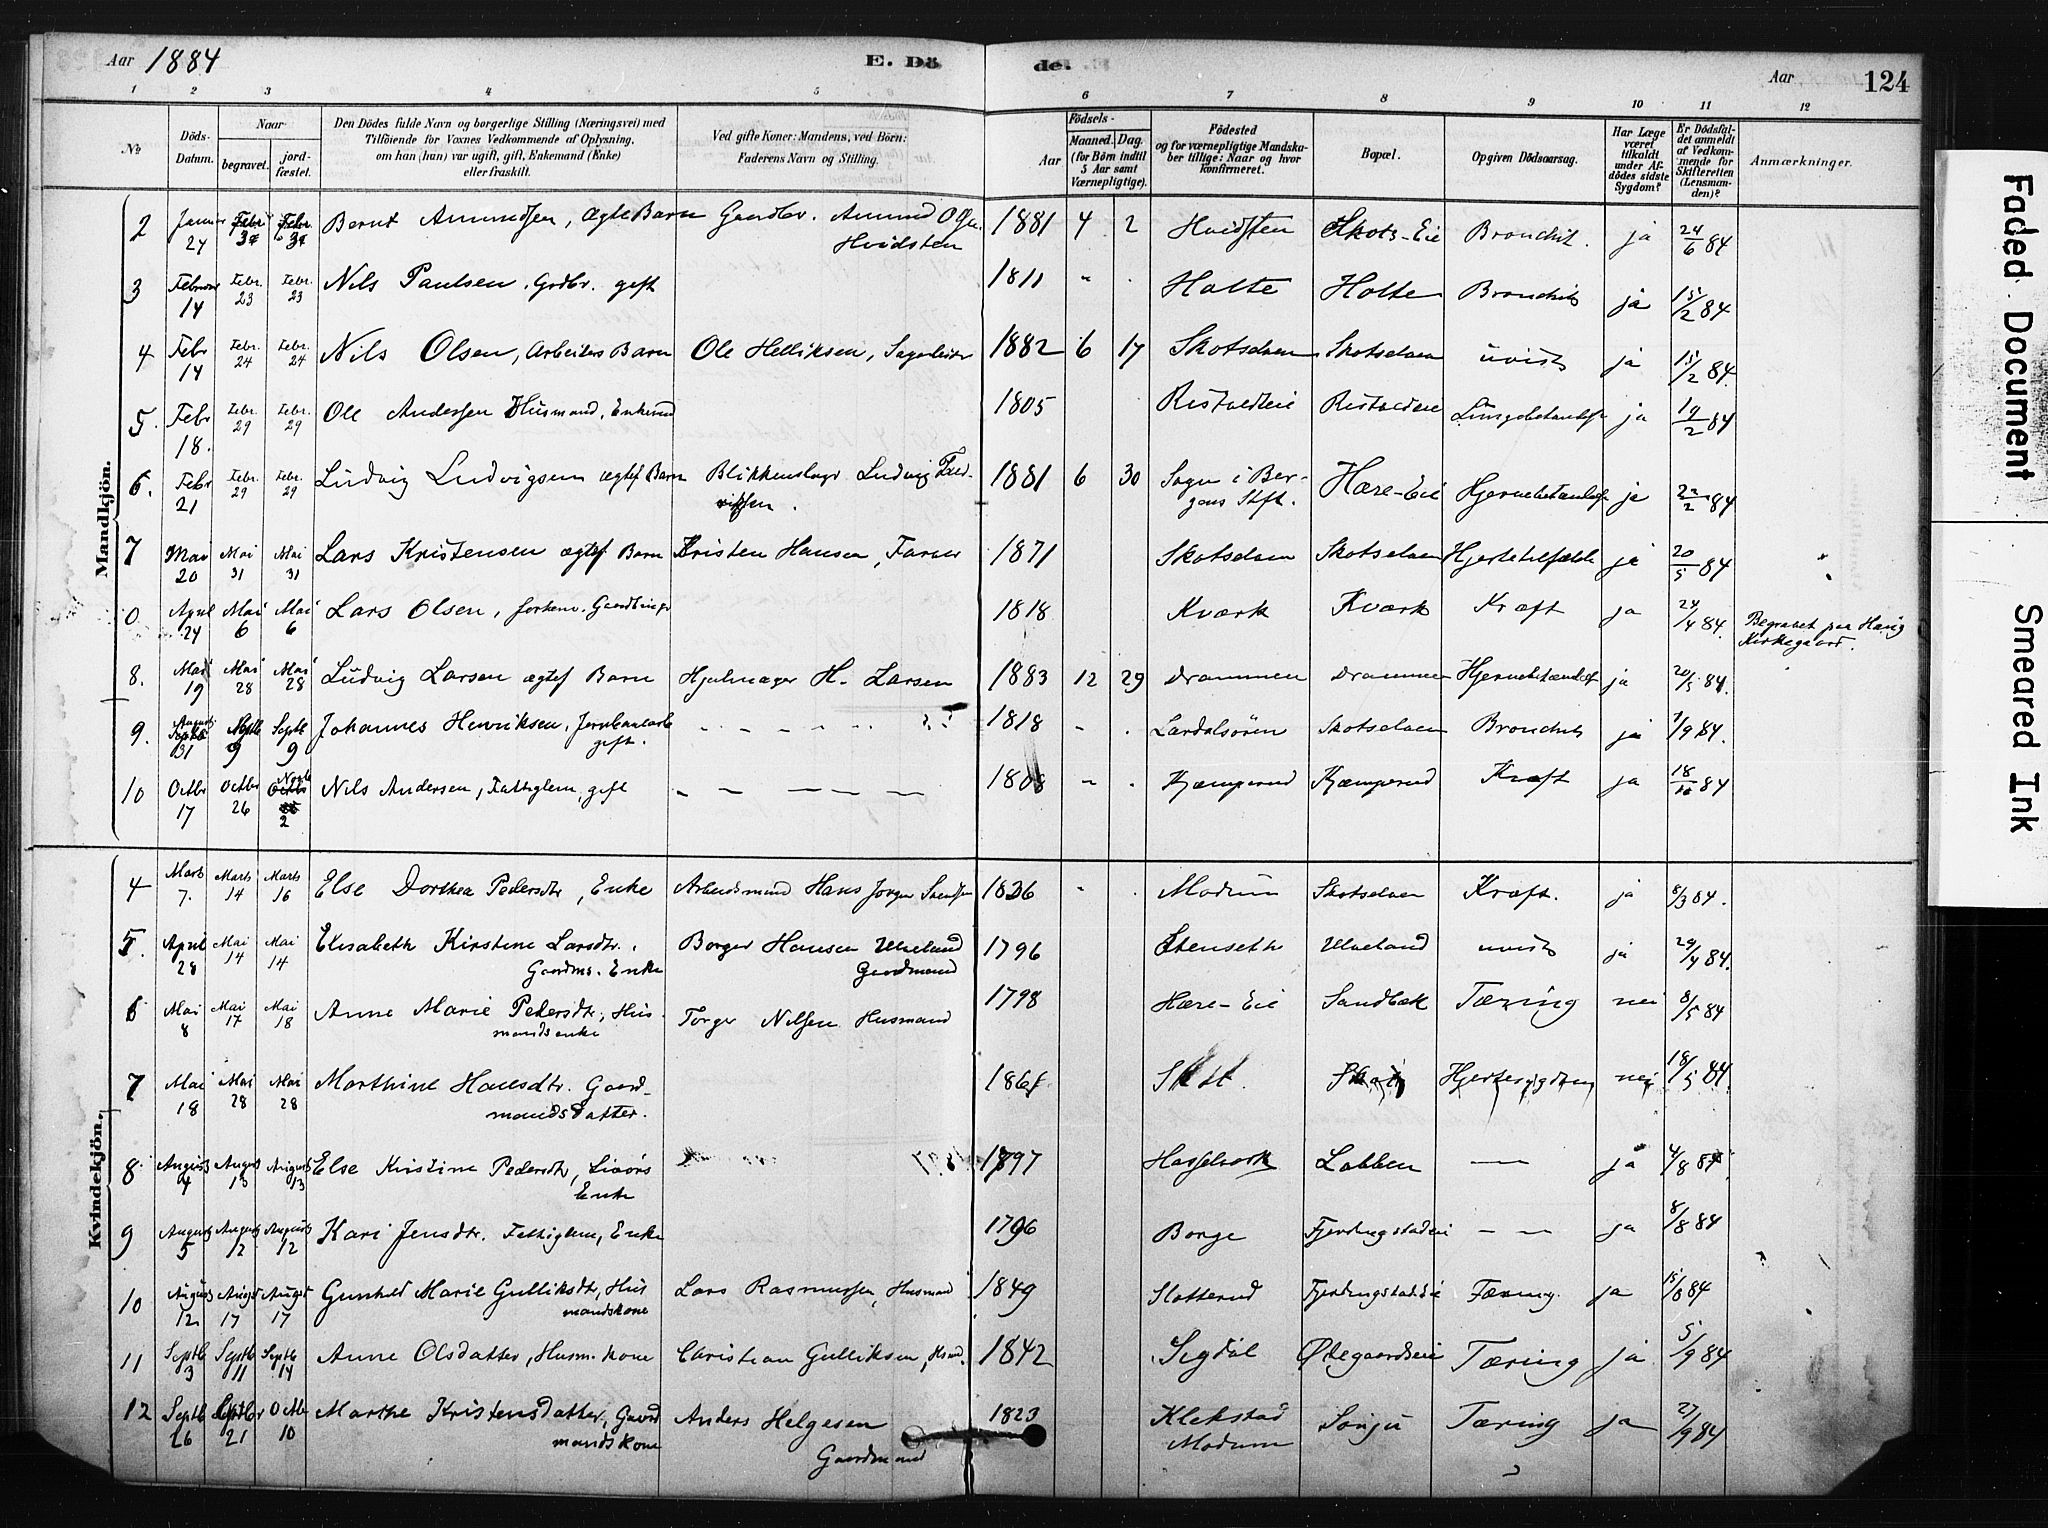 Aar 1884 E. Dö de. Aar 124
1 2 3 4 5 6 7 8 9 10 11 12
№ Döds-Datum. Naar begravet. jord-fæstet.
Den Dödes fulde Navn og borgerlige Stilling (Næringsvei) med
Tilföiende för Voxnes Vedkommende af Oplysning,
om han (hun) var ugift, gift, Enkemand (Enke)
eller fraskilt.
Ved gifte Koner: Mandens, ved Börn:
Faderens Navn og Stilling.
Födsels-
Aar Maaned. Dag.
(for Börn indtil
5 Aar samt
Værnepligtige).
Födested
og for værnepligtige Mandska-
ber tillige: Naar og hvor
konfirmeret.
Bopæl.
Opgiven Dödsaarsag.
Har Læge
været
tilkaldt
under Af-
dödes sidste
Sygdom?
Er Dödsfal-
det anmeldt
af Vedkom-
mende for
Skifteretten
(Lensman-
den)?
Anmærkninger.
Mandkjön.
2 24 Bernt Amundsen, ægte Barn Gaardbr. Amund Hvidsten 1881 4 2 Hvidsten Skots-Eie Bronchit. ja
3 14 Febr. 23 Febr. 23 Nils Paulsen. Grdbr. gift 1811 Holte Holte ja 15/2 84
4 Febr 14 Febr. 24 Febr. 24 Nils Olsen, Arbeiders Barn Ole Helliksen, 1882 6 17 Skotselven Skotselven uvist ja 15/2 84.
5. Febr 18. Febr. 29 Febr. 29 Ole Andersen Husmand, 1805 ja 19/2 84
6. Febr 21 Febr. 29 Febr. 29 Ludvig Ludvigsen ægtef Barn Ludvig 1881 6 30 Sogn i Ber-
gens Stift. Hære-Eie ja 84
7 Mai 20 Mai 31 Mai 31 Lars Kristensen ægtef Barn Kristen Hansen, 1871 Skotselven Skotselven ja 20/5 84
0 April 24 Mai 6 Mai 6 Lars Olsen, 1818 Kværk Kværk Kræft ja 24/4 84. Begravet paa Haug
Kirkegaard.
8. Mai 19 Mai 28 Mai 28 Ludvig Larsen ægtef Barn Hjulmager H. Larsen 1883 12 29 Drammen Drammen ja 20/5 84.
9. August 31 9 Septb 9 Johannes Henriksen, gift. 1818 Lærdalsören Skotselven ja 1/9 84.
10 Octbr 17 Octbr 26 Novb 2 Nils Andersen, Fattiglem, gift Kjæmperud Kjæmperud Kræft ja 18/10 84
Kvindekjön.
4 Marts 7. Marts 14 Marts 16 Else Dorthea Pedersdtr, Enke Arbeidsmand Hans Jörgen Svendsen 1836 Modum Skotselven Kræft. ja 8/3 84.
5. April 28 Mai 14 Mai 14 Elisabeth Kirstine Larsdtr.
Gaardms. Enke Borger Hansen Ulveland
Gaardmand 1796 Stenseth Ulveland uvist ja 29/4 84.
6 Mai 8 Mai 17 Mai 18 Anne Marie Pedersdtr, Hus-
mandsenke Torger Nilsen Husmand 1798 Hære-Eie Sandbæk Tæring nei 8/5 84
7 Mai 18 Mai 28 Mai 28 Marthine Hansdtr. Gaard-
mandsdatter. Skott. nei 18/5 84.
8 August 4 August 13 August 13 Else Kristine Pedersdtr,
Enke 1797 Labben — ja 4/8 84
9 August 5 August 12 August 12 Kari Jensdtr. Fattiglem, Enke 1796 Borge Fjerdingstadeie — — ja 8/8 84
10 August 12 August 17 August 17 Gunhild Marie Gulliksdtr, Hus
mandskone Lars Rasmussen, Husmand 1849 Slotterud Fjerdingstadeie Tæring. ja 15/8 84
11 Septb 3 Septb 11 Septb 14 Anne Olsdatter, Husm. kone Christian Gulliksen, 1842 Sigdal Ödegaardseie Tæring ja 5/9 84
12 Septb 26 21 Octbr 10 Marthe Kristensdatter, Gaard
mandskone Anders Helgesen
Gaardmand 1823 Klekstad
Modum Sönju Tæring ja 27/9 84
Faded Document
Smeared Ink